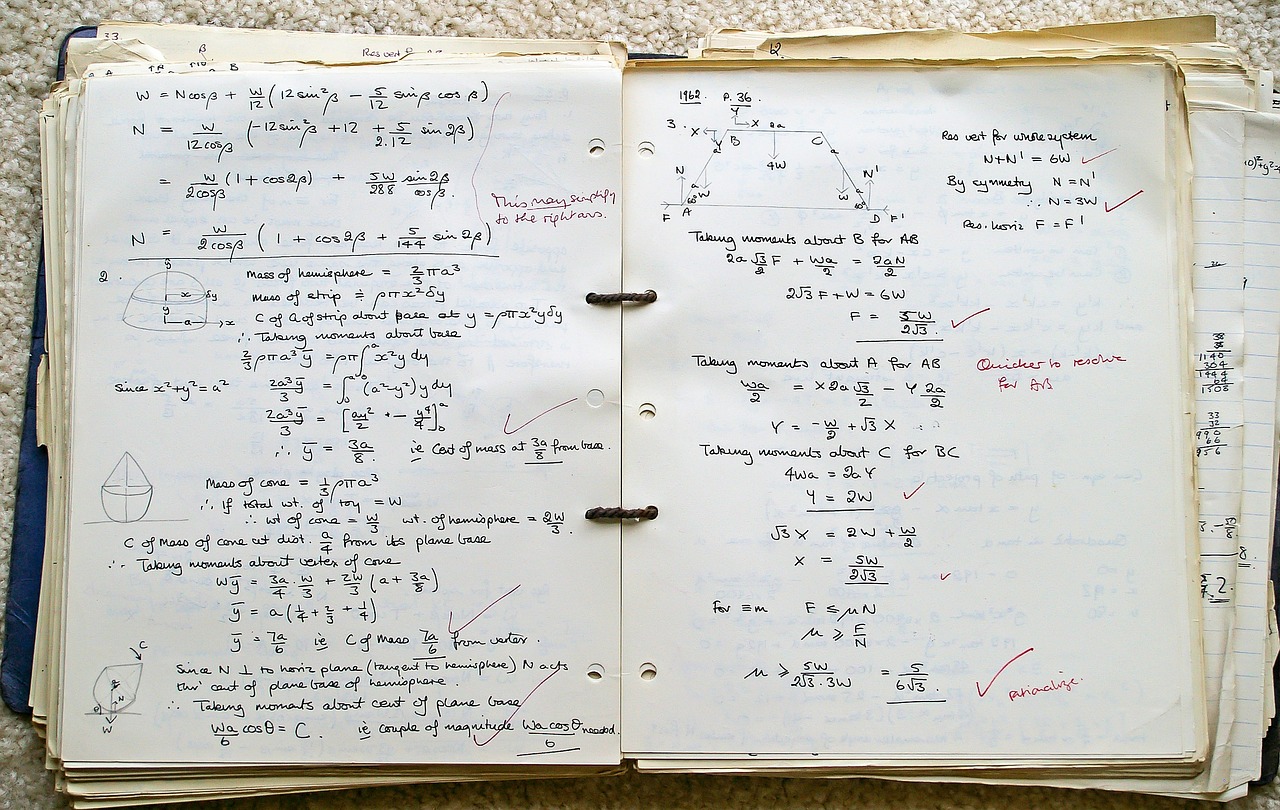 33.
β
Res vert
W = Ncosβ + W/12 (12sin²β − 5/12 sinβ cosβ)
N = W/12cosβ (−12sin²β + 12 + 5/2.12 sin2β)
= W/2cosβ (1 + cos2β) + 5W/288 sin2β/cosβ.
This may simplify
to the right ans.
N = W/2cosβ (1 + cos2β + 5/144 sin2β)
2.
y
x δy
y
a x
Mass of hemisphere = 2/3 πa³
Mass of strip ≑ ρπx²δy
C of G of strip about base at y = ρπx²yδy
∴ Taking moments about base
2/3 ρπa³ȳ = ρπ∫₀ᵃ x²y dy
Since x²+y²=a² 2a³ȳ/3 = ∫₀ᵃ (a²−y²)y dy
2a³ȳ/3 = [ay²/2 − y⁴/4]₀ᵃ
∴ ȳ = 3a/8 ie Cent of mass at 3a/8 from base.
Mass of cone = 1/3 ρπa³
∴ If total wt. of toy = W
∴ wt of cone = W/3 wt. of hemisphere = 2W/3.
C of Mass of cone at dist. a/4 from its plane base
∴ Taking moments about vertex of cone
Wȳ = 3a/4 . W/3 + 2W/3 (a + 3a/8)
ȳ = a(1/4 + 2/3 + 1/4)
ȳ = 7a/6 ie C of Mass 7a/6 from vertex.
C
N
θ
W
Since N ⊥ to horiz plane (tangent to hemisphere) N acts
thro' cent of plane base of hemisphere.
∴ Taking moments about cent of plane base
Wa/6 cosθ = C. ie couple of magnitude Wa cosθ/6 needed.
12.
1962. P. 36.
3. Y
X X 2a
B C
Y a a
4W
N a a N'
W W
60° 60°
F A D F'
Res vert for whole system
N+N' = 6W
By symmetry N = N'
∴ N = 3W
Res. horiz F = F'
Taking moments about B for AB
2a √3/2 F + Wa/2 = 2aN/2
2√3 F + W = 6W
F = 5W/2√3.
Taking moments about A for AB
Quicker to resolve
for AB
Wa/2 = X 2a √3/2 − Y 2a/2
Y = −W/2 + √3 X
Taking moments about C for BC
4Wa = 2aY
Y = 2W
√3 X = 2W + W/2
X = 5W/2√3
For ≡m F ≤ μN
μ ≥ F/N
μ ≥ 5W/2√3.3W = 5/6√3.
rationalize.
38
38
1140
304
1444
64
1508
33
32
990
66